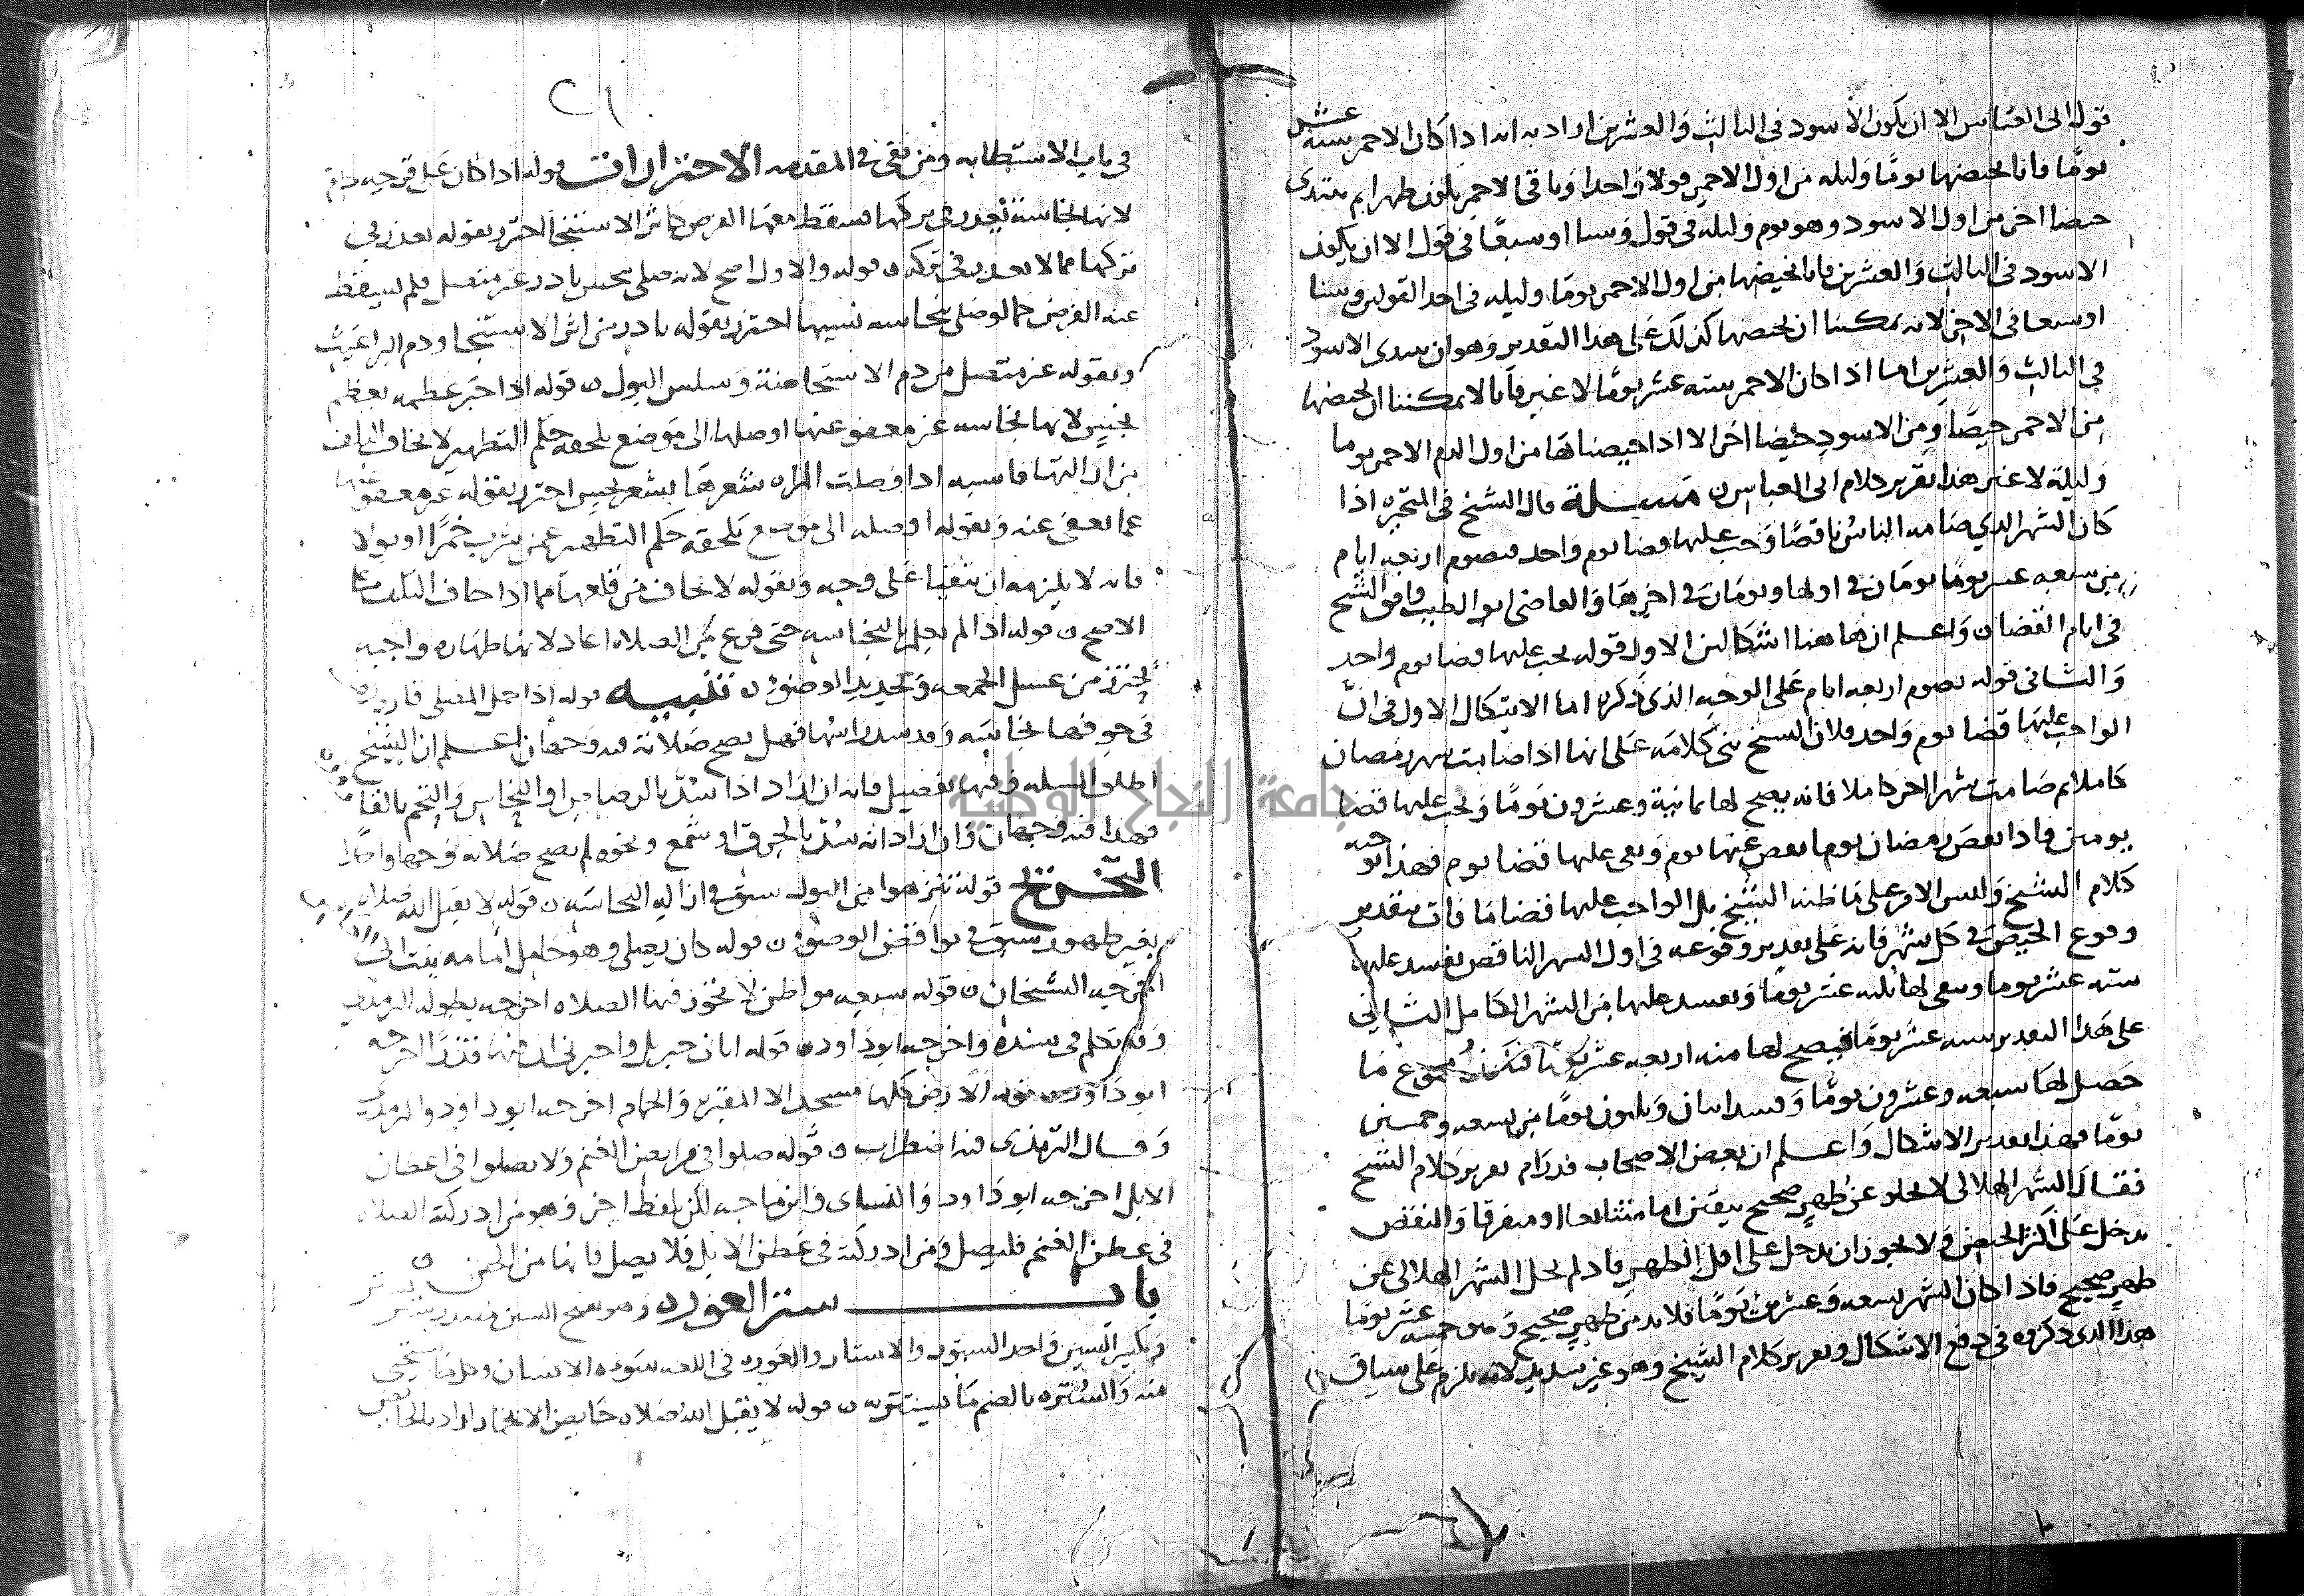 قوله ابى العباس الا ان يكون الأسود فى الثالث والعشرين اراد به انه اذا كان الاحمر ستة عشر
يومًا فانا نحيضها يومًا وليله من اول الاحمر قولا واحدا وباقى الاحمر يكون طهرا ثم يبتدى
حيضا اخر من اول الاسود وهو يوم وليله فى قول وستا او سبعًا فى قول الا ان يكون
الاسود فى الثالث والعشرين فانا نحيضها من اول الاحمر يومًا وليله فى احد القولين وستا
اوسبعا فى الاخر لانه يمكننا ان نحيضها كذلك على هذا التقدير وهو ان يبتدى الاسود
فى الثالث والعشرين اما اذا كان الاحمر ستة عشر يومًا لا غير فانا لا يمكننا ان نحيضها
من الاحمر حيضًا ومن الاسود حيضا اخر الا اذا حيضناها من اول الدم الاحمر يوما
وليلة لا غير هذا تقرير كلام ابى العباس مسلة قال الشيخ فى المتحيره اذا
كان الشهر الذي صامه الناس ناقصًا وجب عليها قضا يوم واحد فتصوم اربعه ايام
من سبعه عشر يومًا يومان فى اولها ويومان فى اخرها والقاضى ابو الطيب وافق الشيخ
فى ايام القضا واعلم ان هاهنا اشكالين الاول قوله يجب عليها قضا يوم واحد
والثانى قوله تصوم اربعه ايام على الوجه الذى ذكره اما الاشكال الاول فى انّ
الواجب عليها قضا يوم واحد فلان الشيخ بنى كلامه على انها اذا صامت شهر رمضان
كاملا ثم صامت شهرا اخر كاملا فانه يصح لها ثمانية وعشرون يومًا ويجب عليها قضا
يومين فاذا نقص رمضان يوما نقص عنها يوم وبقى عليها قضا يوم فهذا توجيه
كلام الشيخ وليس الامر على ما ظنه الشيخ بل الواجب عليها قضا ما فات بتقدير
وقوع الحيض فى كل شهر فانه على تقدير وقوعه فى اول الشهر الناقص يفسد عليها
سته عشر يوما ويبقى لها ثلثه عشر يومًا ويفسد عليها من الشهر الكامل الثانى
على هذا التقدير سته عشر يومًا فيصح لها منه اربعه عشر يومًا فيكون مجموع ما
حصل لها سبعه وعشرون يومًا وفسد اثنان وثلثون يومًا من تسعه وخمسين
يومًا فهذا تقدير الاشكال واعلم ان بعض الاصحاب قد رام تقرير كلام الشيخ
فقال الشهر الهلالى لا يخلو عن طهر صحيح بيقين اما متتابعا او متفرقا والنقص
يدخل على اكثر الحيض ولا يجوز ان يدخل على اقل الطهر فاذا لم يخل الشهر الهلالى عن
طهر صحيح فاذا كان الشهر تسعه وعشرين يومًا فلا بد من طهر صحيح وهو خمسه عشر يومًا
هذا الذى ذكروه فى دفع الاشكال وتقرير كلام الشيخ وهو غير سديد لانه يلزم على سياق
٢١
فى باب الاستطابه ومن بقى فى المقدمه الاحترازات قوله اذا كان على قرحه دم
لانها نجاسة يعذر فى تركها فسقط معها الفرض كاثر الاستنجا احترز بقوله يعذر فى
تركها مما لا يعذر فى تركه قوله والاول اصح لانه صلى بنجس نادر غير متصل فلم يسقط
عنه الفرض كما لو صلى بنجاسه نسيها احترز بقوله نادر من اثر الاستنجا ودم البراغيث
وبقوله غير متصل من دم الاستحاضة وسلس البول قوله اذا جبر عظمه بعظم
نجس لانها نجاسه غير معفو عنها اوصلها الى موضع يلحقه حكم التطهير لا يخاف التلف
من ازالتها فاشبه اذا وصلت المراه شعرها بشعر نجس احترز بقوله غير معفو عنها
عما يعفى عنه وبقوله اوصله الى موضع يلحقه حكم التطهير عمن شرب خمرًا او بولا
فانه لا يلزمه ان يتقيا على وجه وبقوله لا يخاف من قلعها مما اذا خاف التلف على
الاصح قوله اذا لم يعلم بالنجاسه حتى فرغ من الصلاه اعاد لانها طهاره واجبه
يحترز من غسل الجمعه وتجديد الوضوء تنبيه قوله اذا حمل المصلى قاروره
فى جوفها نجاسه وقد سد راسها فهل تصح صلاته فيه وجهان اعلم ان الشيخ
اطلق المسله وفيها تفصيل فانه ان اراد اذا سدّ بالرصاص او النحاس
فهذا فيه وجهان وان اراد انه سدّ بالخرق او شمع ونحوه لم تصح صلاته وجها واحدا
التخريج قوله تنزهوا من البول سبق فى ازاله النجاسه قوله لا يقبل الله صلاه
بغير طهور سبق فى نواقض الوضوء قوله كان يصلى وهو حامل امامه بنت ابى
اخرجه الشيخان قوله سبعه مواطن لا تجوز فيها الصلاه اخرجه بطوله الترمذى
وقد تكلم فى سنده واخرجه ابو داود قوله اتانى جبريل واخبرنى ان فيها قذرًا اخرجه
ابو داود قوله الارض كلها مسجد الا المقبره والحمام اخرجه ابو داود والترمذى
وقال الترمذى فيه اضطراب قوله صلوا فى مرابض الغنم ولا تصلوا فى اعطان
الابل اخرجه ابو داود والنساى وابن ماجه لكن بلفظ اخر وهو من ادركته الصلاه
فى عطن الغنم فليصل ومن ادركته فى عطن الابل فلا يصل فانها من الجن
باب ستر العوره هو بفتح السين مصدر ستر
وبكسر السين واحد الستور والاستار والعوره فى اللغه سوءه الانسان وكل ما يستحيى
منه والستره بالضم ما يستتر به قوله لا يقبل الله صلاه حايض الا بخمار اراد بالحايض
جامعة النجاح الوطنية